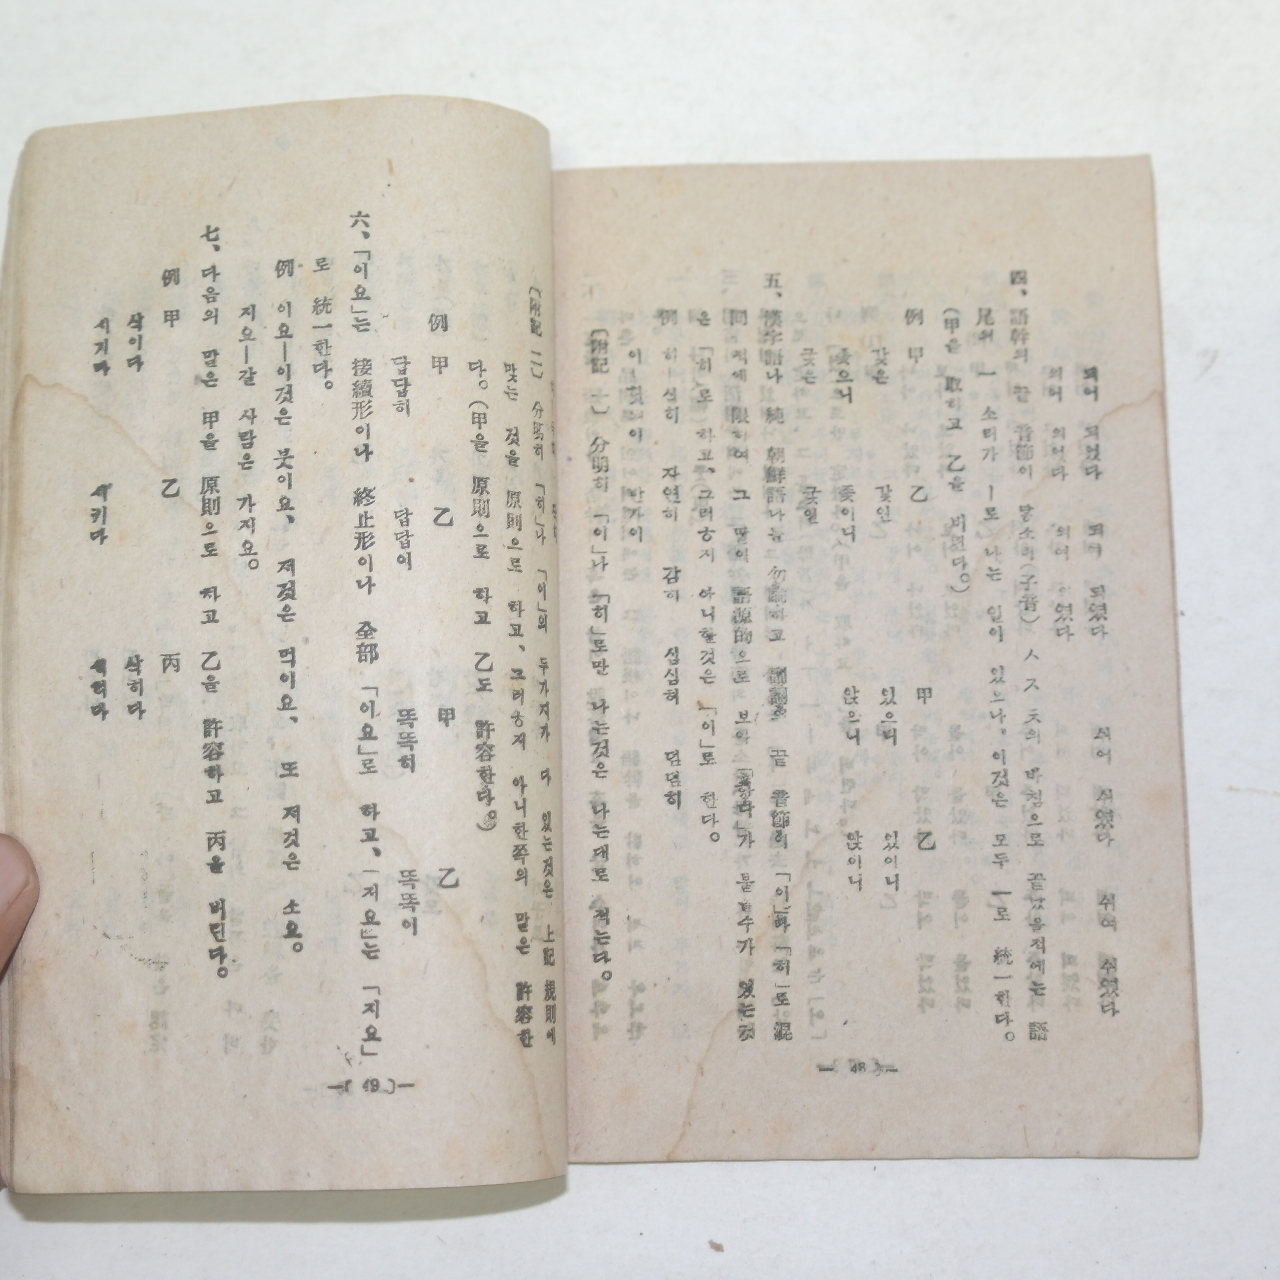 되어 되었다 되여 되였다 쉬어 쉬었다 쉬여 쉬였다
되어 되었다 되여 되였다
四、語幹의 끝 音節이 닿소리(子音) ㅅ ㅈ ㅊ의 바침으로 끝났을적에는 語
尾의 ㅡ 소리가 ㅣ로 나는 일이 있으나, 이것은 모두 ㅡ로 統一한다。
(甲을 取하고 乙을 버린다。)
例 甲 乙 甲 乙
같은 있으니 있이니
좇으니 좇이니 앉으니 앉이니
궂은 궂인
五、漢字語나 純 朝鮮語나를 勿論하고 副詞의 끝 音節이 「이」와 「히」로 混
同 적에 限하여 그 말이 語源的으로 보아 「하다」가 붙을수가 있는것
은 「히」로 하고、그러ㅎ지 아니할것은 「이」로 한다。
例 히―심히 자연히 감히 심심히 덤덤히
반가이
(附記 一) 分明히 「이」나 「히」로만 나는것은 나는대로 적는다。
— 48 —
(附記 二) 分明히 「히」나 「이」의 두가지가 다 있는것은 上記 規則에
맞는 것을 原則으로 하고、그러ㅎ지 아니한쪽의 말은 許容한
다。(甲을 原則으로 하고 乙도 許容한다。)
例 甲 乙 甲 乙
답답히 답답이 똑똑히 똑똑이
六、「이요」는 接續形이나 終止形이나 全部 「이요」로 하고、「지요」는 「지요」
로 統一한다。
例 이요―이것은 붓이요、저것은 먹이요、또 저것은 소요。
지요―갈 사람은 가지요。
七、다음의 말은 甲을 原則으로 하고 乙을 許容하고 丙을 버린다。
例 甲 乙 丙
삭이다 삭히다
시키다
— 49 —